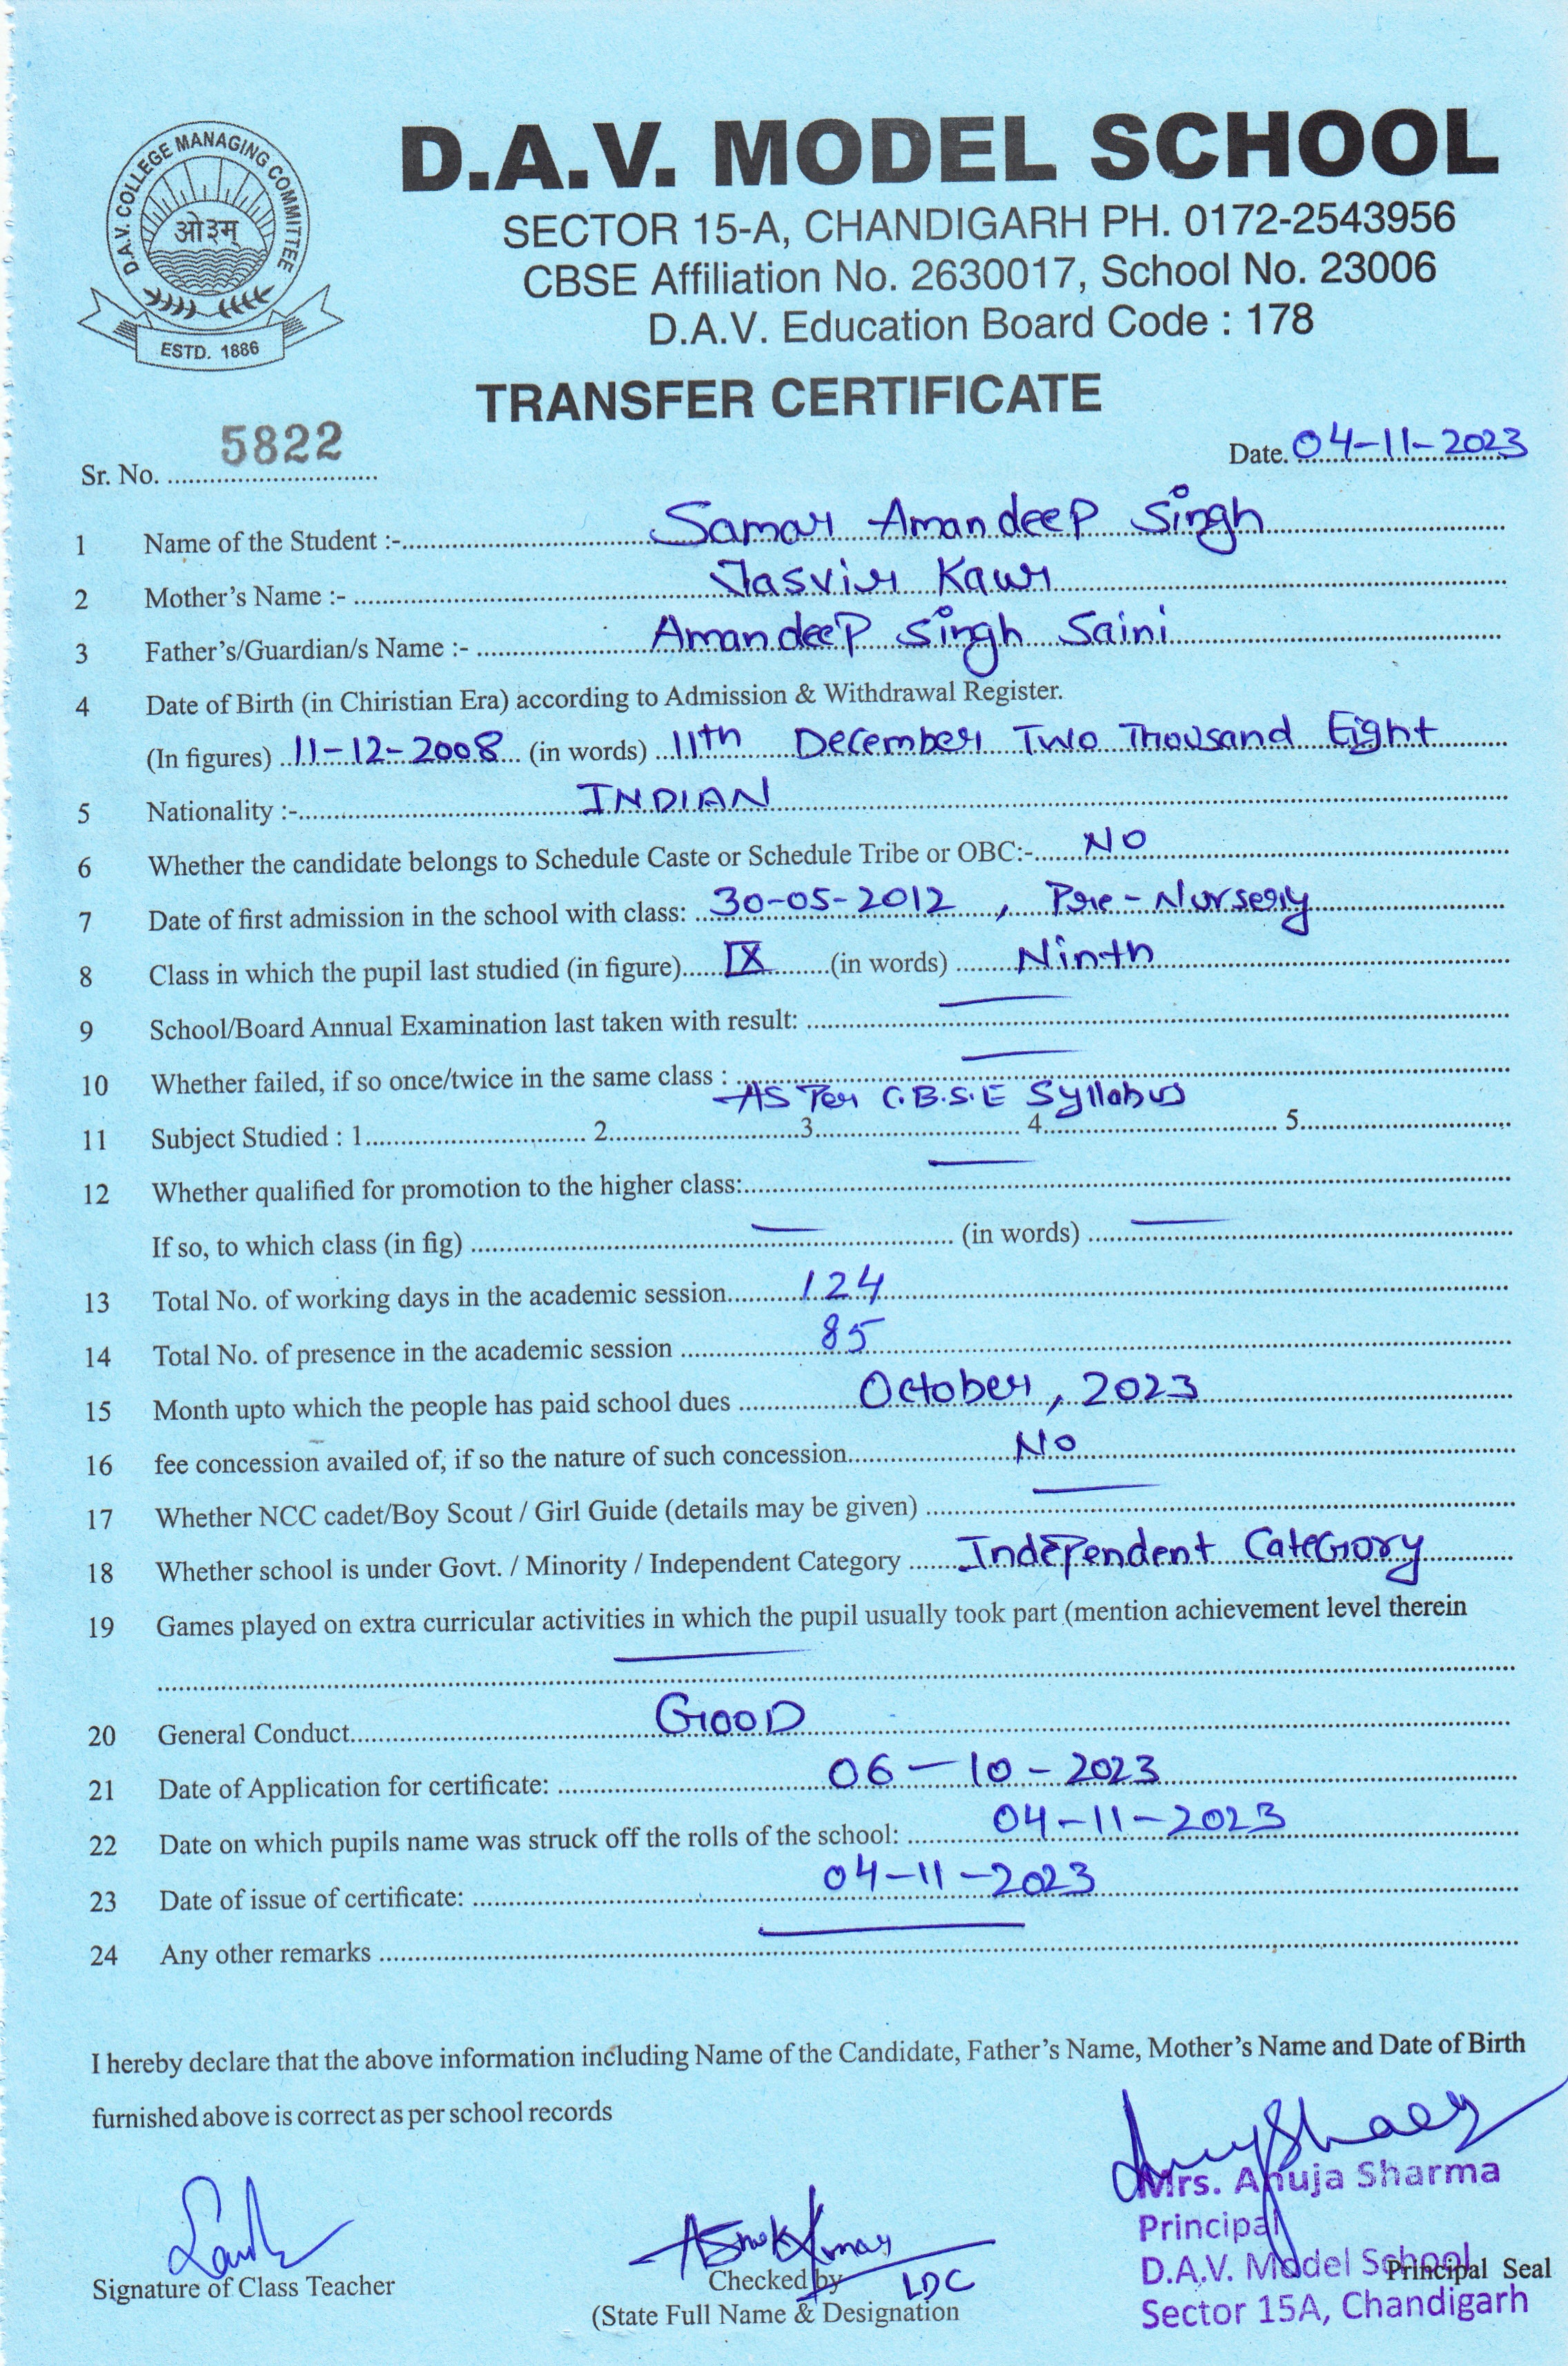 D.A.V. COLLEGE MANAGING COMMITTEE
ओ३म्
ESTD. 1886
D.A.V. MODEL SCHOOL
SECTOR 15-A, CHANDIGARH PH. 0172-2543956
CBSE Affiliation No. 2630017, School No. 23006
D.A.V. Education Board Code : 178
TRANSFER CERTIFICATE
Sr. No. 5822 Date. 04-11-2023
1 Name of the Student :- Samar Amandeep Singh
2 Mother's Name :- Jasvir Kaur
3 Father's/Guardian/s Name :- Amandeep Singh Saini
4 Date of Birth (in Chiristian Era) according to Admission & Withdrawal Register.
(In figures) 11-12-2008 (in words) 11th December Two Thousand Eight
5 Nationality :- INDIAN
6 Whether the candidate belongs to Schedule Caste or Schedule Tribe or OBC:- NO
7 Date of first admission in the school with class: 30-05-2012, Pre-Nursery
8 Class in which the pupil last studied (in figure) IX (in words) Ninth
9 School/Board Annual Examination last taken with result: —
10 Whether failed, if so once/twice in the same class : —
As Per C.B.S.E Syllabus
11 Subject Studied : 1 2 3 4 5
12 Whether qualified for promotion to the higher class: —
If so, to which class (in fig) — (in words) —
13 Total No. of working days in the academic session 124
14 Total No. of presence in the academic session 85
15 Month upto which the people has paid school dues October, 2023
16 fee concession availed of, if so the nature of such concession No
17 Whether NCC cadet/Boy Scout / Girl Guide (details may be given) —
18 Whether school is under Govt. / Minority / Independent Category Independent Category
19 Games played on extra curricular activities in which the pupil usually took part (mention achievement level therein
—
20 General Conduct GOOD
21 Date of Application for certificate: 06-10-2023
22 Date on which pupils name was struck off the rolls of the school: 04-11-2023
23 Date of issue of certificate: 04-11-2023
24 Any other remarks —
I hereby declare that the above information including Name of the Candidate, Father's Name, Mother's Name and Date of Birth
furnished above is correct as per school records
Mrs. Anuja Sharma
Principal
D.A.V. Model School
Sector 15A, Chandigarh
Ashok Kumar
Signature of Class Teacher Checked by LDC Principal Seal
(State Full Name & Designation